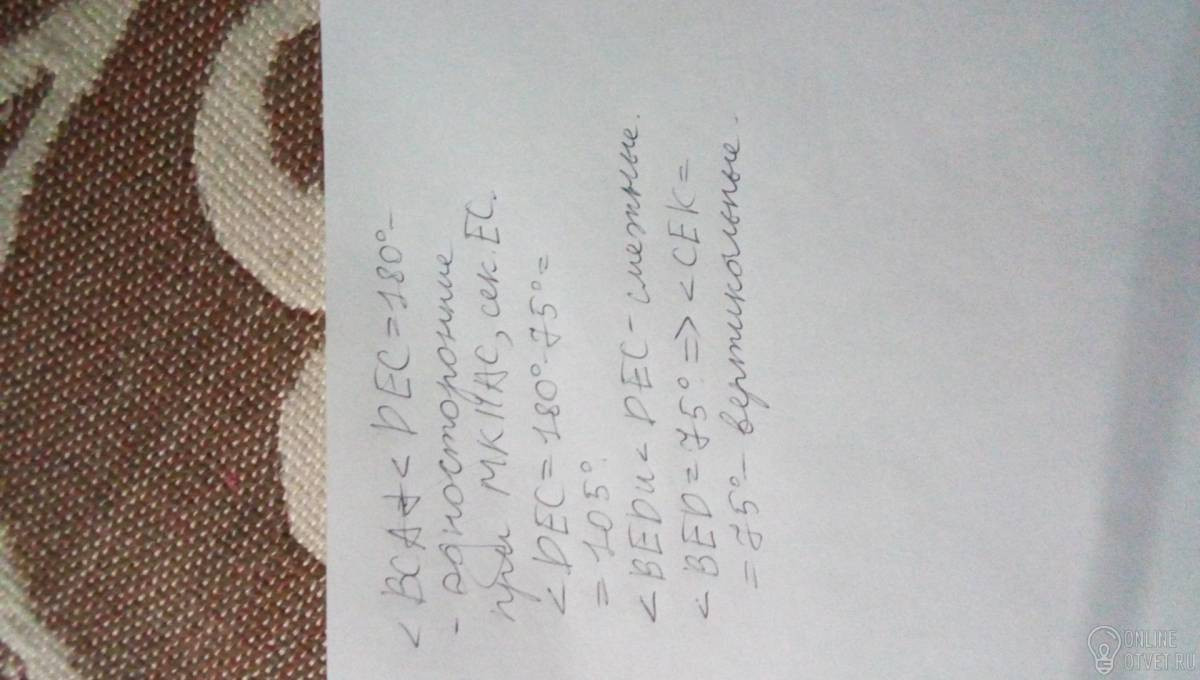 < BCA+< DEC=180°-
- односторонние
при MK||AC, сек. EC.
< DEC=180°-75°=
= 105°.
< BED и < DEC - смежные.
< BED = 75° => < CEK =
= 75° - вертикольные.
ONLINE
OTVET.RU